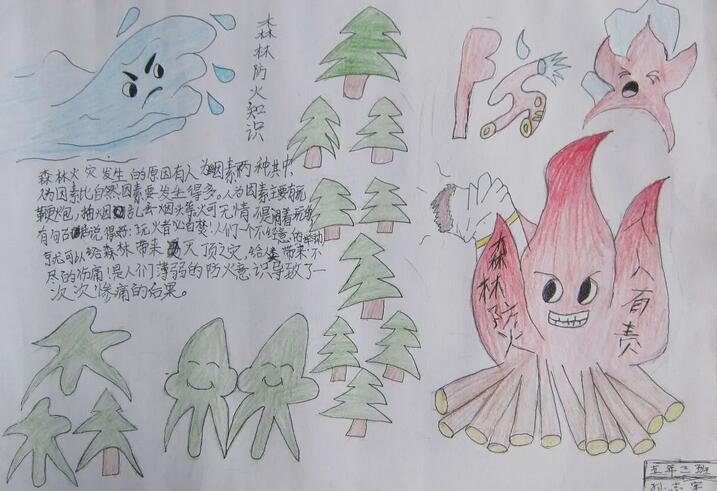 森林防火知识
森林火灾发生的原因有人为因素两种其中
为因素比自然因素要发生得多。人为因素主要有玩
鞭炮，抽烟乱丢烟火等火可无情
有句古话说得好：玩火者必自焚！人们一个不经意的举动
可以给森林带来灭顶之灾，给带来不
尽的伤痛！是人们薄弱的防火意识导致了一
次次惨痛的后果。
森林
防火
森林防火
人人有责
五年三班